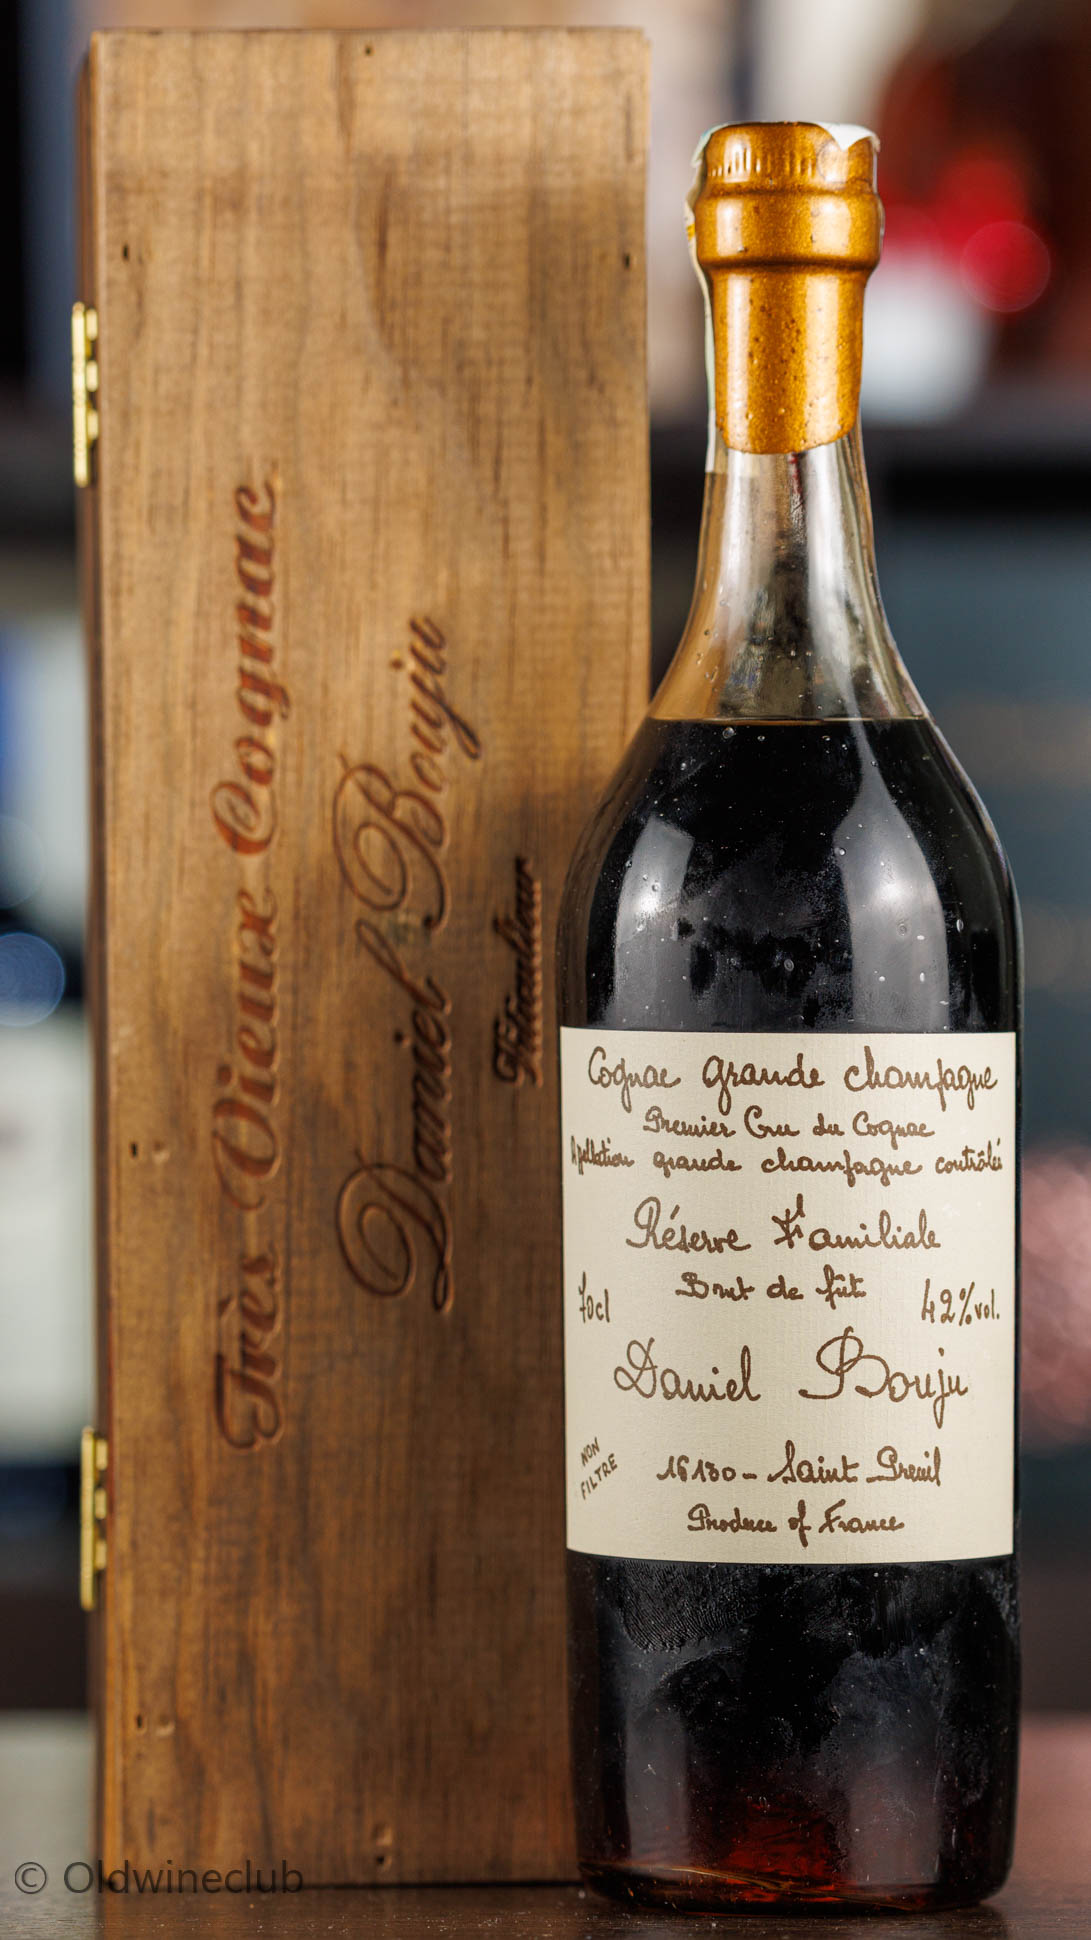 Très Vieux Cognac
Daniel Bouju
Viticulteur
Cognac grande champagne
Premier Cru du Cognac
Apellation grande champagne contrôlée
Réserve Familiale
Brut de fût
70cl
42%vol.
Daniel Bouju
NON
FILTRE
16130 - Saint Preuil
Produce of France
© Oldwineclub